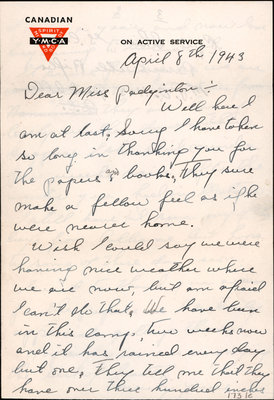 CANADIAN
SPIRIT
Y·M·C·A
ON ACTIVE SERVICE
April 8th 1943
Dear Miss Padginton :-
Well here I
am at last, Sorry I have taken
so long in thanking you for
the papers and books, they sure
make a fellow feel as if he
were nearer home.
Wish I could say we were
having nice weather where
we are now, but am afraid
I can't do that, We have been
in this camp two weeks now
and it has rained every day
but one, They tell me that they
have over three hundred inches